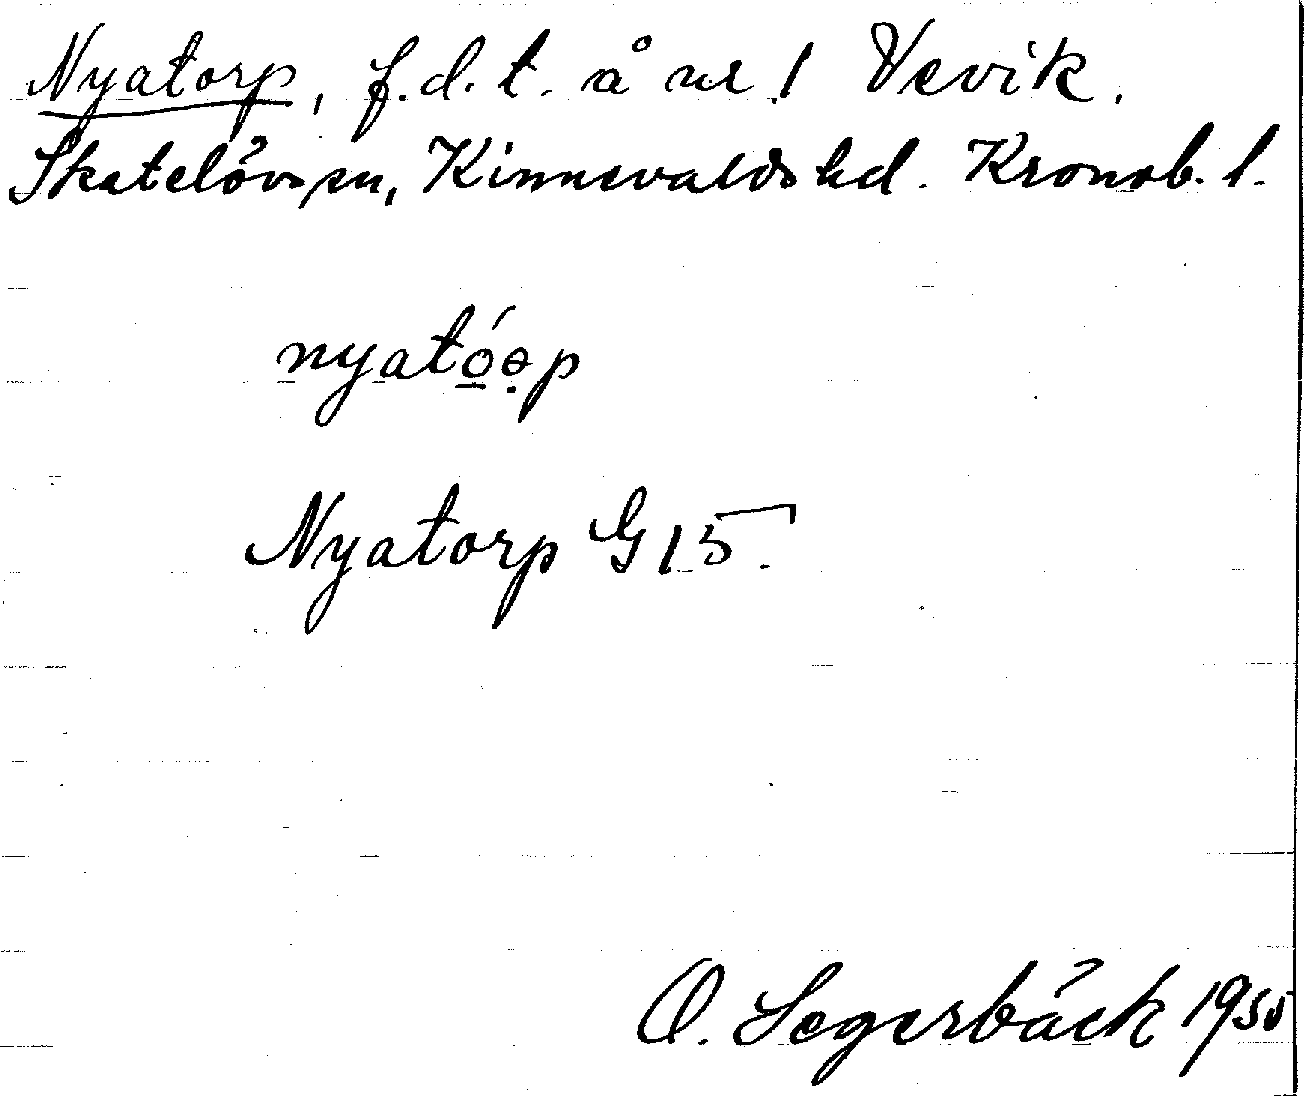 Nyatorp, f.d.t. å nr 1 Vevik.
Skatelövs sn, Kinnevalds hd. Kronob. l.
nyato̲´ɵ̣p
Nyatorp G 15.
O. Segerbäck 1935